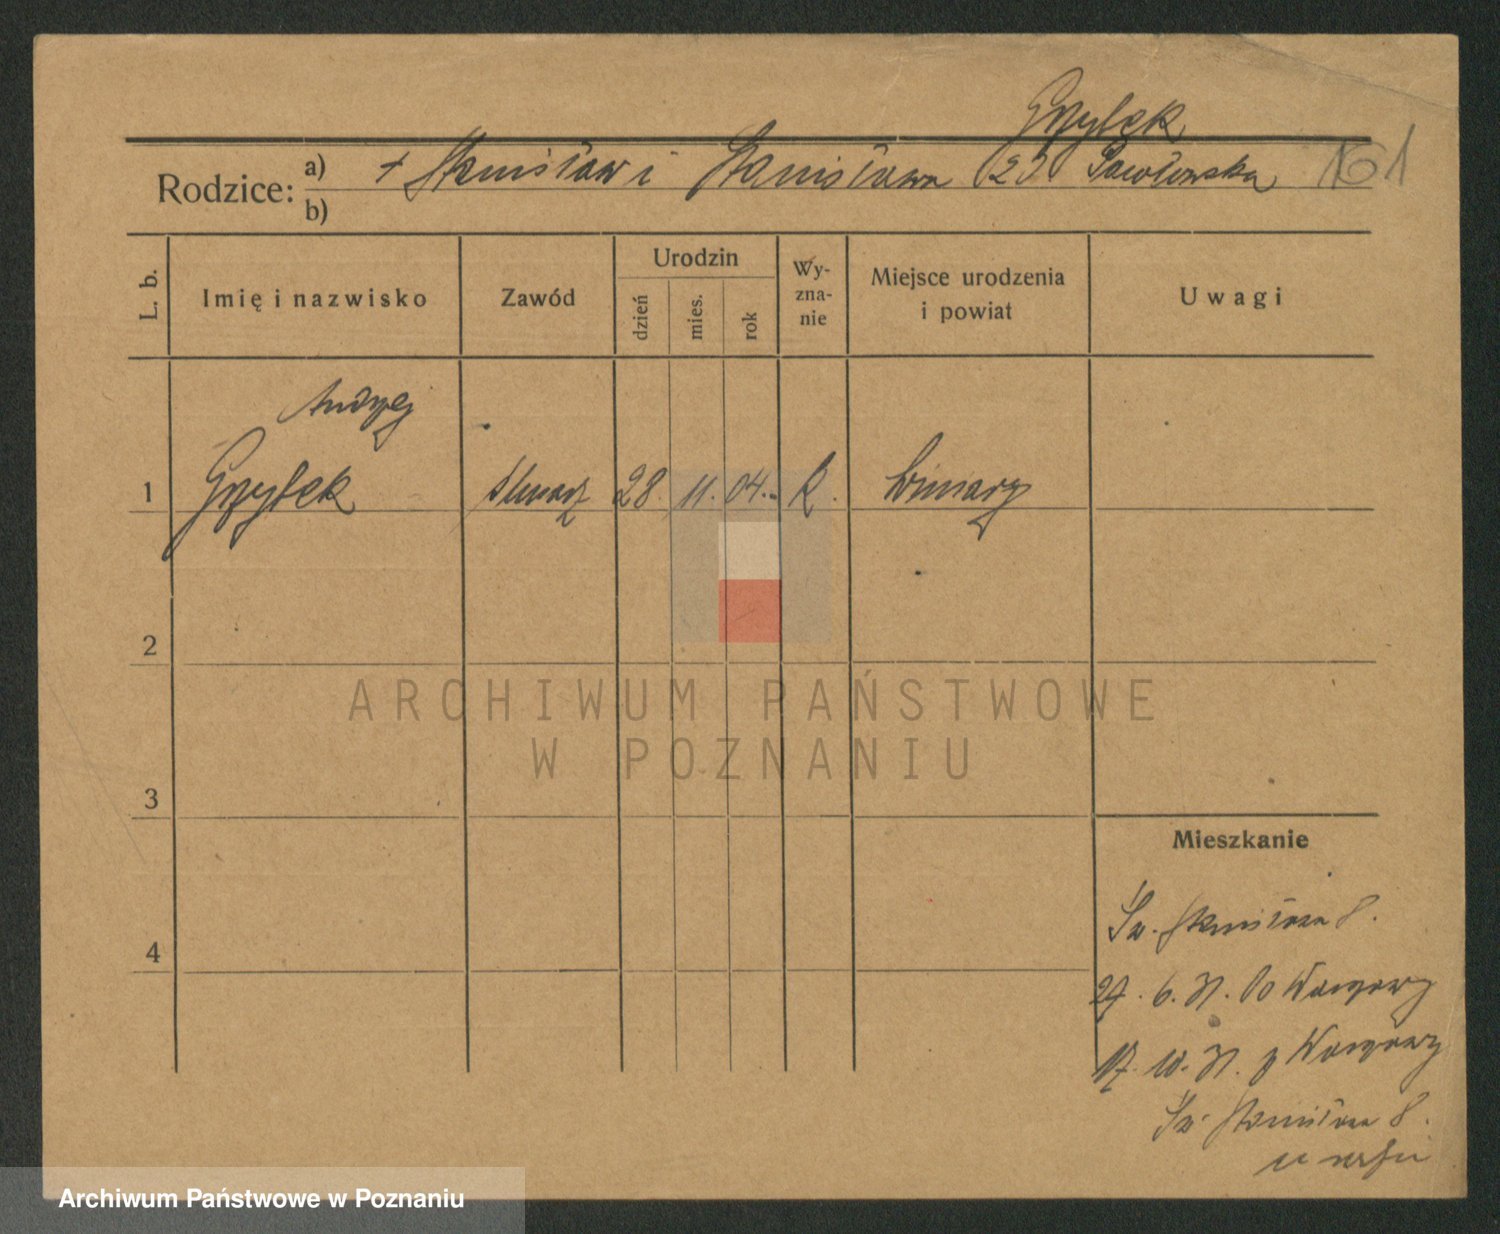 Grzybek
Rodzice: a) + Stanisław i Stanisława Pawłowska 161
b)
L. b. Imię i nazwisko Zawód Urodzin dzień mies. rok Wy-zna-nie Miejsce urodzenia i powiat Uwagi
Andrzej
1 Grzybek ślusarz 28. 11. 04. R. Winiary
2
ARCHIWUM PAŃSTWOWE
W POZNANIU
3
Mieszkanie
Św. Stanisława 8.
4
29. 6. 31. Do Wargowy
17. 10. 31. z Wargowy
Św. Stanisława 8.
Archiwum Państwowe w Poznaniu